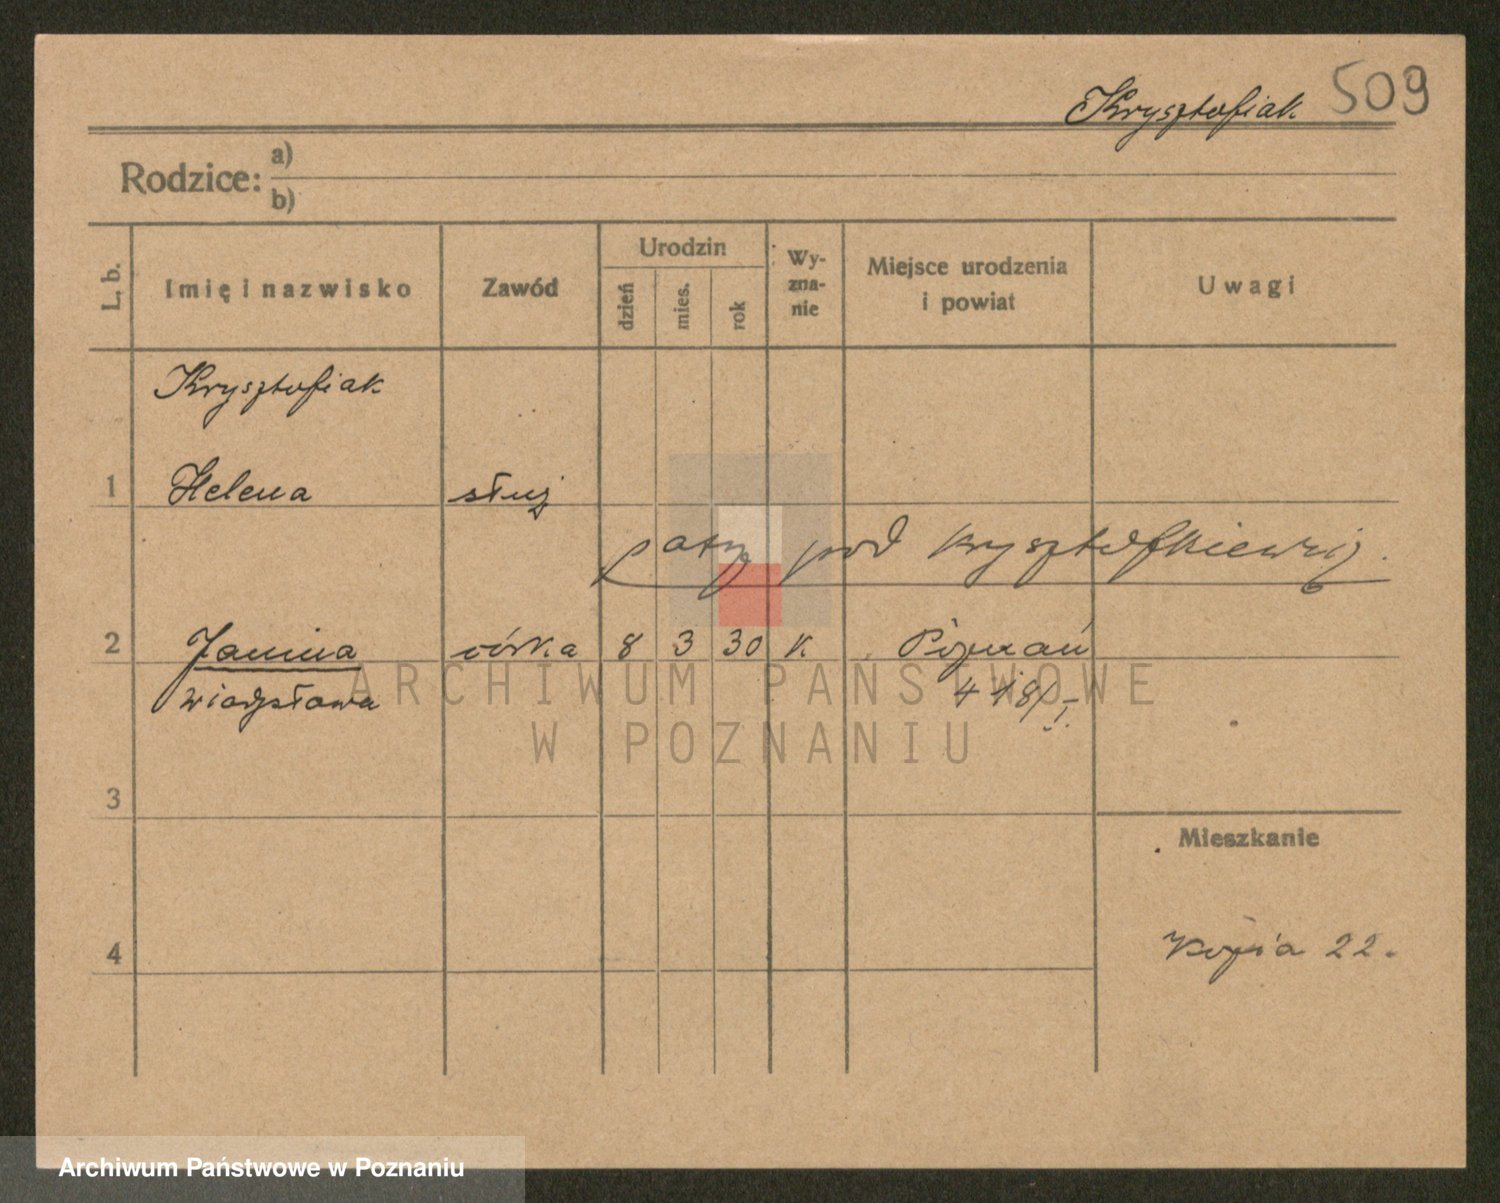 Krysztofiak 509
Rodzice: a)
b)
L. b.
Imię i nazwisko
Zawód
Urodzin
dzień
mies.
rok
Wy-
zna-
nie
Miejsce urodzenia
i powiat
Uwagi
Krysztofiak
1 Helena służ
patrz pod Krysztofkiewicz.
2 Janina córka 8 3 30 k. Poznań
Władysława 418/I.
3
Mieszkanie
4
Kopia 22.
ARCHIWUM PAŃSTWOWE
W POZNANIU
Archiwum Państwowe w Poznaniu